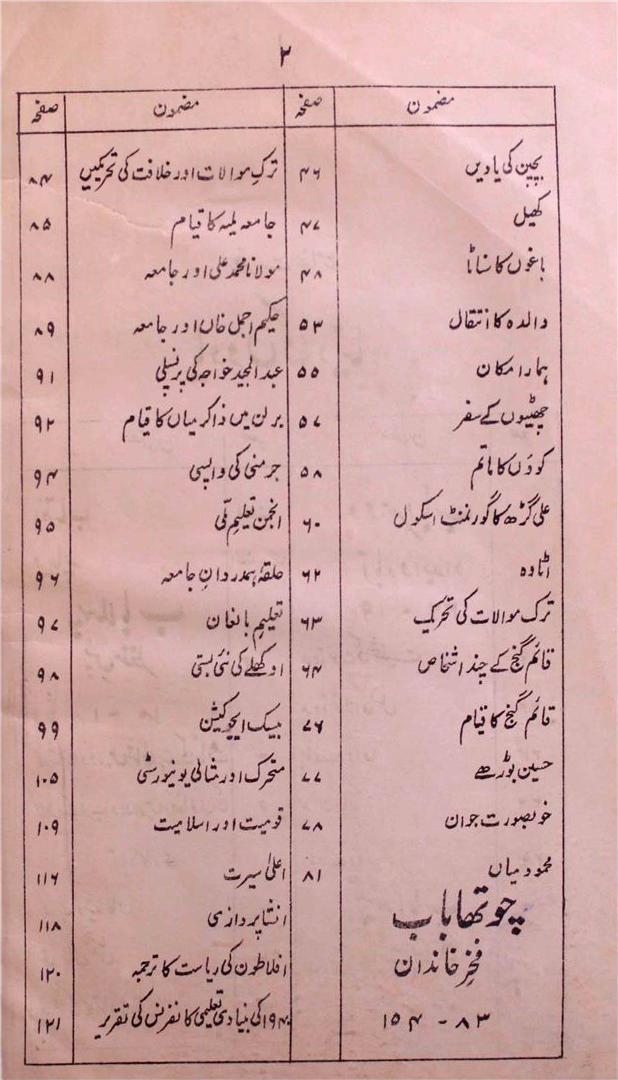 ۲
مضمون صفحہ
بچپن کی یادیں ۴۶
کھیل ۴۷
باغوں کا سناٹا ۴۸
والدہ کا انتقال ۵۳
ہمارا مکان ۵۵
چھٹیوں کے سفر ۵۷
کووّں کا ماتم ۵۸
علی گڑھ کا گورنمنٹ اسکول ۶۰
اٹاوہ ۶۲
ترک موالات کی تحریک ۶۳
قائم گنج کے چند اشخاص ۶۴
قائم گنج کا قیام ۷۶
حسین بوڑھے ۷۷
خوبصورت جوان ۷۸
محمود میاں ۸۱
چوتھا باب
فخرِ خاندان
۸۳ - ۱۵۴
مضمون صفحہ
ترکِ موالات اور خلافت کی تحریکیں ۸۴
جامعہ ملیہ کا قیام ۸۵
مولانا محمد علی اور جامعہ ۸۸
حکیم اجمل خاں اور جامعہ ۸۹
عبدالمجید خواجہ کی پرنسپلی ۹۱
برلن میں ذاکر میاں کا قیام ۹۲
جرمنی کی واپسی ۹۴
انجمن تعلیمِ ملّی ۹۵
حلقۂ ہمدردانِ جامعہ ۹۶
تعلیمِ بالغان ۹۷
اوکھلے کی نئی بستی ۹۸
بیسک ایجوکیشن ۹۹
متحرک اور مثالی یونیورسٹی ۱۰۵
قومیت اور اسلامیت ۱۰۹
اعلیٰ سیرت ۱۱۶
انشا پردازی ۱۱۸
افلاطون کی ریاست کا ترجمہ ۱۲۰
۱۹۴۰ کی بنیادی تعلیمی کانفرنس کی تقریر ۱۲۱